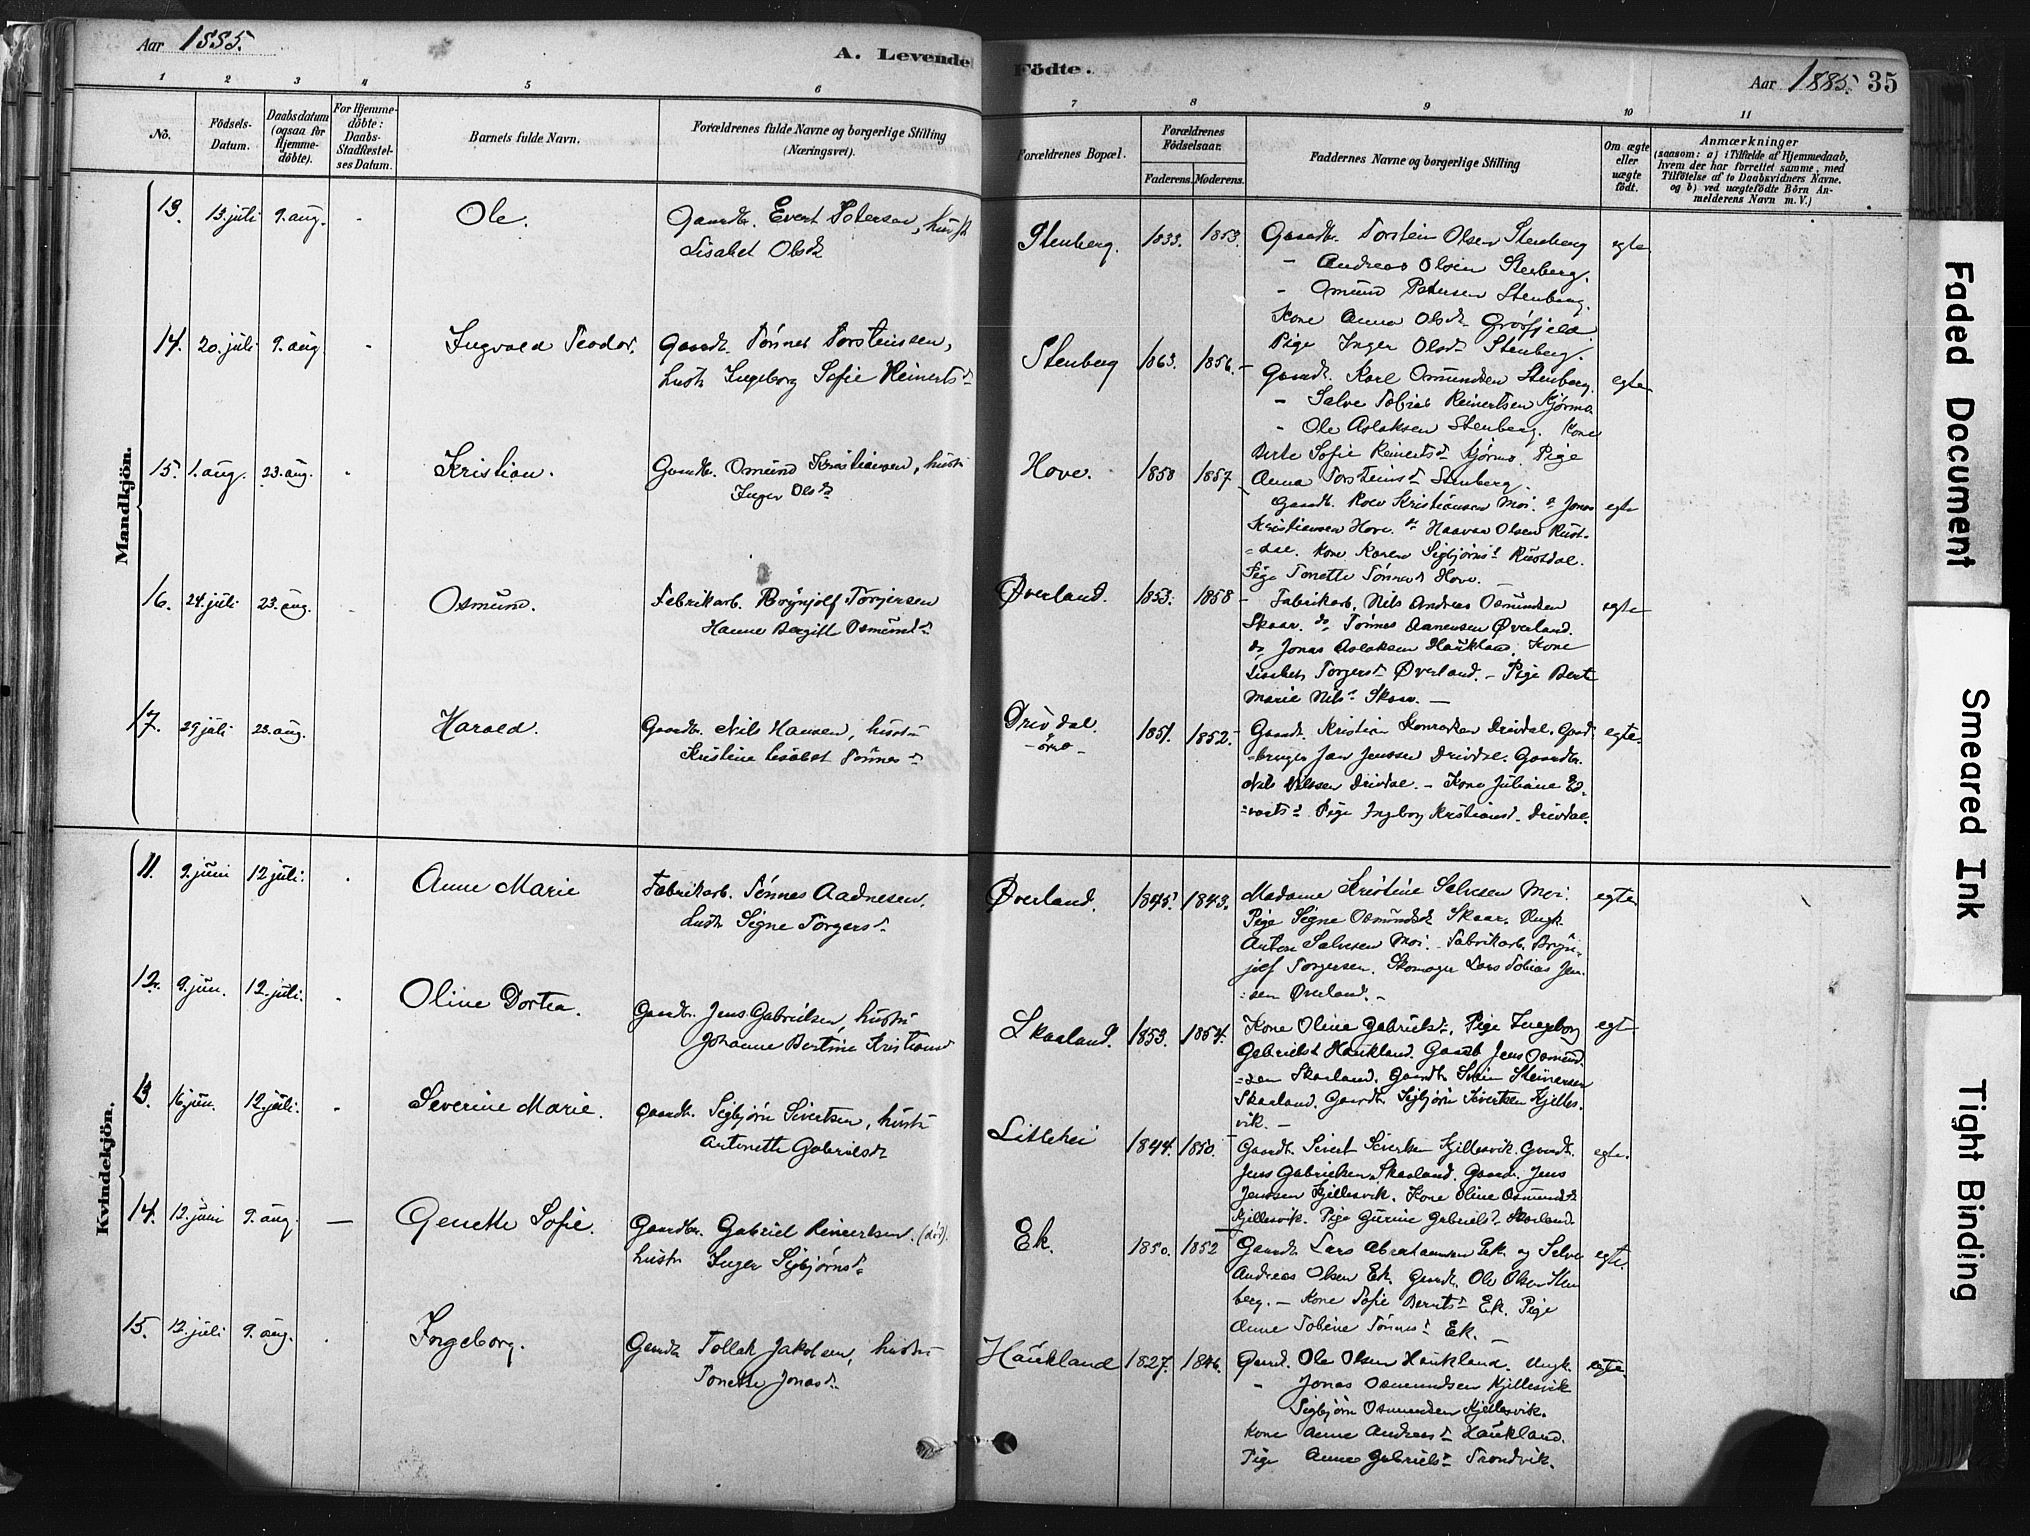 Aar 1885.
A. Levendefödte.
Aar 1885. 35
1 2 3 4 5 6 7 8 9 10 11
No.
Födsels-Datum.
Daabsdatum (ogsaa for Hjemmedöbte).
For Hjemmedöbte: Daabs-Stadfæstelses Datum.
Barnets fulde Navn.
Forældrenes fulde Navne og borgerlige Stilling (Næringsvei).
Forældrenes Bopæl.
Forældrenes Födselsaar.
Faderens. Moderens.
Faddernes Navne og borgerlige Stilling
Om ægte eller uægte födt.
Anmærkninger
(saasom: a) i Tilfælde af Hjemmedaab,
hvem der har forrettet samme, med
Tilföielse af to Daabsvidners Navne,
og b) ved uægtefödte Börn An-
melderens Navn m. V.)
Mandkjön.
13. 13. juli 9. aug. - Ole. Gaardbr. Evert Petersen, hustr
Lisabet Olsdt
Stenberg. 1833. 1853. Gaardbr. Torstein Olsen Stenberg egte
- Andreas Olsen Stenberg.
- Osmund Petersen Stenberg.
Kone Anna Olsdt
Pige Inger Olsdt Stenberg.
14. 20. juli 9. aug - Ingvald Teodor. Gaardbr. Tönnes Torsteinssen,
hustr Ingeborg Sofie Reinertsd
Stenberg 1863. 1856. Gaardbr. Karl Osmundsen Stenberg. egte
- Salve Tobias Reinertsen Kjörmo.
- Ole Aslaksen Stenberg. Kone
Berte Sofie Reinertsd Kjörmo. Pige
Anna Torsteinsd Stenberg.
15. 1. aug. 23. aug. - Kristian. Gaardbr. Osmund Kristiansen, hustr
Inger Olsd
Hove. 1850 1857 Gaardbr. Kristiansen Moi. Jonas egte
Kristiansen Hove. Haavar Olsen Rust-
dal. Kone Karen Sigbjörnsd Rustdal.
Pige Tonette Tönnesd Hove.
16. 24. juli 23. aug. Osmund. Fabrikarb. Brynjolf Torjersen
Hanne Bergitte Osmundsd
Øverland. 1853. 1858 - Fabrikarb. Nils Andreas Osmundsen egte
Skaar. do Tönnes Aanensen Øverland.
do Jonas Aslaksen Haukland. Kone
Lisabet Torgersd Øverland. - Pige Bert
Marie Nilsd Skaar. -
17. 29 juli 23. aug. Harald. Gaardbr. Nils Hansen, hustru
Kristine Lisabet Tönnesd
Drivdal. 1851. 1852. Gaardbr. Kristian Drivdal. Gaard- egte
bruger Jan Jenssen Drivdal. Gaardbr.
Nils Nilssen Drivdal. - Kone Juliane Ed-
vartsd Pige Ingeborg Kristiansd. Drivdal.
Kvindekjön.
11. 9. juni 12 juli. - Anne Marie Fabrikarb. Tönnes Aadnesen,
hustr Signe Torgersd
Øverland. 1845. 1843. Madame Kristine Salvesen Moi. egte
Pige Signe Osmundsdt Skaar. Ungk.
Anton Salvesen Moi. Fabrikarb. Brynj-
jolf Torgersen. Skomager Lars Tobias Jen-
sen Øverland. -
12. 9. jun. 12. juli. - Oline Dortea. Gaardbr. Jens Gabrielsen, hustru
Johanne Bertine Kristiansd
Skaaland. 1853. 1854. Kone Oline Gabrielsdt, Pige Ingeborg egt
Gabrielsd Haukland. Gaardb Jens Osmund-
sen Skaaland. Gaardbr. Steinarsen
Skaaland. Gaardbr. Sigbjörn Sivertsen Kjelles-
vik. -
13. 16. jun. 12. juli. - Severine Marie. Gaardbr. Sigbjörn Sivertsen, hustr
Antonette Gabrielsdt
Litlehei 1844. 1850. Gaardbr. Sivert Sivertsen Kjellesvik. Gaardbr. egte.
Jens Gabrielsen Skaaland. Gaardbr Jens
Jenssen Kjellesvik. Kone Oline Osmundsdt
Kjellesvik. Pige Gurine Gabrielsd Skaaland.
14. 12. juni 9. aug. — Genette Sofie. Gaardbr. Gabriel Reinertsen. (död).
hustr Inger Sigbjörnsd
Ek. 1850. 1852 Gaardbr. Lars Abrahamsen Ek. og Salve egte.
Andreas Olsen Ek. Gaardbr. Ole Olsen Sten
berg. - Kone Sofie Berntsd Ek. Pige
Anne Tobine Tönnesd Ek. -
15. 12. juli 9. aug. - Ingeborg. Gaardbr Tollak Jakobsen, hustru
Tonette Jonasd.
Haukland 1827. 1846. Gaardbr. Ole Olsen Haukland. Ungk. egte.
- Jonas Osmundsen Kjellesvik
Sigbjörn Osmundsen Kjellesvik.
Kone Anne Andreasd Haukland.
Pige Anne Gabrielsd Trondvik.
Faded Document
Smeared Ink
Tight Binding